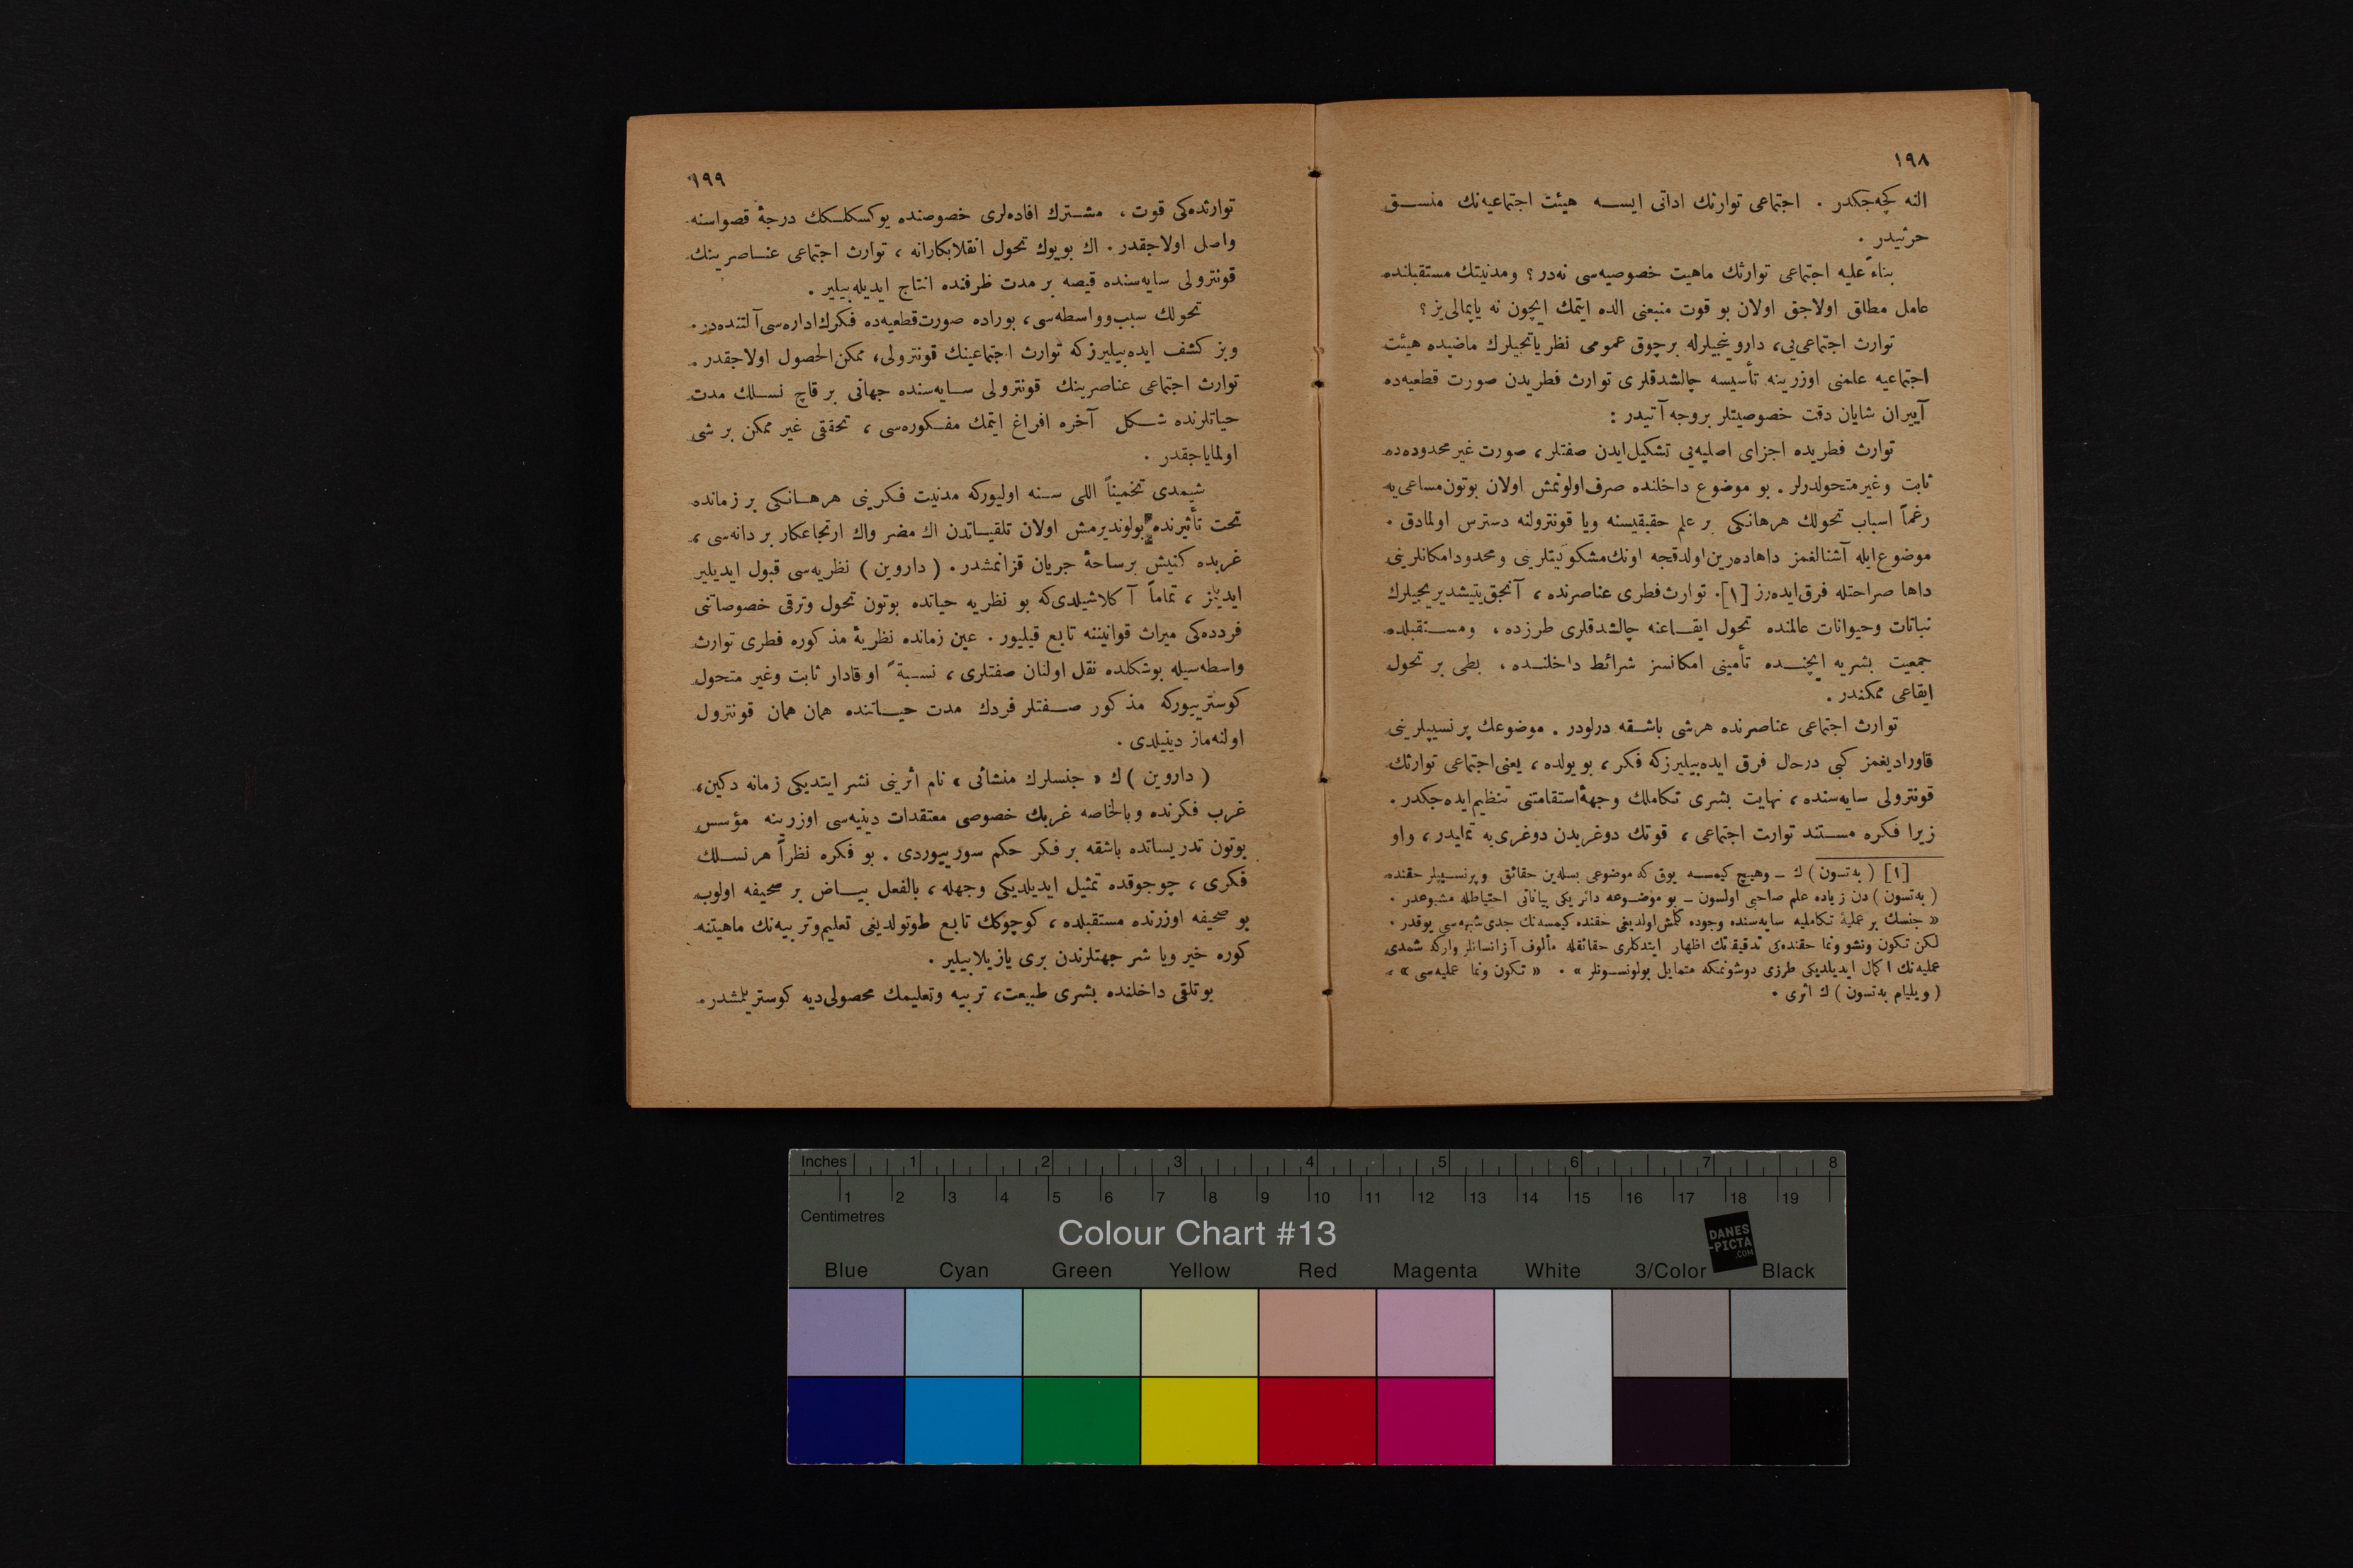 ١٩٨
النه كچه‌جكدر . اجتماعی توارثك اداتی ایسه هیئت اجتماعیه‌نك منسق
حرثیدر .
بناءً علیه اجتماعی توارثك ماهیت خصوصیه‌سی نه‌در ؟ ومدنیتك مستقبلنده
عامل مطلق اولاجق اولان بو قوت منبعنی الده ایتمك ایچون نه یاپمالی‌یز ؟
توارث اجتماعی‌یی، داروینجیلرله برچوق عمومی نظریاتجیلرك ماضیده هیئت
اجتماعیه علمنی اوزرینه تأسیسه چالشدقلری توارث فطریدن صورت قطعیه‌ده
آییران شایان دقت خصوصیتلر بروجه آتیدر :
توارث فطریده اجزای اصلیه‌یی تشكیل ایدن صفتلر، صورت غیر محدوده‌ده
ثابت وغیر متحولدرلر . بو موضوع داخلنده صرف اولونمش اولان بوتون مساعی‌یه
رغماً اسباب تحولك هرهانكی بر علم حقیقیسنه ویا قونترولنه دسترس اولمادق .
موضوع ایله آشنالغمز داها ده‌رین اولدقجه اونك مشكوكیتلرینی ومحدود امكانلرینی
داها صراحتله فرق ایده‌رز [١]. توارث فطری عناصرنده، آنجق یتیشدیریجیلرك
نباتات وحیوانات عالمنده تحول ایقاعنه چالشدقلری طرزده، ومستقبلده
جمعیت بشریه ایچنده تأمینی امكانسز شرائط داخلنده، بطی بر تحول
ایقاعی ممكندر .
توارث اجتماعی عناصرنده هرشی باشقه درلودر . موضوعك پرنسیپلرینی
قاورادیغمز كبی درحال فرق ایده‌بیلیرزكه فكر، بو یولده، یعنی اجتماعی توارثك
قونترولی سایه‌سنده، نهایت بشری تكاملك وجههٔ استقامتنی تنظیم ایده‌جكدر .
زیرا فكره مستند توارث اجتماعی، قوتك دوغریدن دوغری‌یه تمایدر، واو
[١] ( به‌تسون ) ك ــ وهیچ كیمسه یوق كه موضوعی بسله‌ین حقائق و پرنسیپلر حقنده
( به‌تسون ) دن زیاده علم صاحبی اولسون ــ بو موضوعه دائر یكی بیاناتی احتیاطله مشبوعدر .
« جنسك بر عملیهٔ تكاملیه سایه‌سنده وجوده كلمش اولدیغی حقنده كیمسه‌نك جدی شبهه‌سی یوقدر .
لكن تكون ونشو ونما حقنده‌كی تدقیقاتك اظهار ایتدكلری حقائقله مألوف آز انسانلر واركه شمدی
عملیه‌نك اكمال ایدیلدیكی طرزی دوشونمكه متمایل بولونسونلر » . « تكون ونما عملیه‌سی »
( ویلیام به‌تسون ) ك اثری .
١٩٩
توارثده‌كی قوت، مشترك افاده‌لری خصوصنده یوكسكلكك درجهٔ قصواسنه
واصل اولاجقدر . اك بویوك تحول انقلابكارانه، توارث اجتماعی عناصرینك
قونترولی سایه‌سنده قیصه بر مدت ظرفنده انتاج ایدیله‌بیلیر .
تحولك سبب وواسطه‌سی، بوراده صورت قطعیه‌ده فكرك اداره‌سی آلتنده‌در .
وبز كشف ایده‌بیلیرزكه توارث اجتماعینك قونترولی، ممكن الحصول اولاجقدر .
توارث اجتماعی عناصرینك قونترولی سایه‌سنده جهانی بر قاچ نسلك مدت
حیاتلرنده شكل آخره افراغ ایتمك مفكوره‌سی، تحققی غیر ممكن بر شی
اولمایاجقدر .
شیمدی تخمیناً اللی سنه اولیوركه مدنیت فكرینی هرهانكی بر زمانده
تحت تأثیرنده بولوندیرمش اولان تلقیاتدن اك مضر واك ارتجاعكار بر دانه‌سی،
غربده كنیش بر ساحهٔ جریان قزانمشدر . ( داروین ) نظریه‌سی قبول ایدیلیر
ایدیلمز، تماماً آكلاشیلدی‌كه بو نظریه حیاتده بوتون تحول وترقی خصوصاتنی
فردده‌كی میراث قوانیننه تابع قیلیور . عین زمانده نظریهٔ مذكوره فطری توارث
واسطه‌سیله بوشكلده نقل اولنان صفتلری، نسبةً اوقادار ثابت وغیر متحول
كوسترییوركه مذكور صفتلر فردك مدت حیاتنده همان همان قونترول
اولنه‌ماز دینیلدی .
( داروین ) ك « جنسلرك منشائی » نام اثرینی نشر ایتدیكی زمانه دكین،
غرب فكرنده وبالخاصه غربك خصوصی معتقدات دینیه‌سی اوزرینه مؤسس
بوتون تدریساتده باشقه بر فكر حكم سورییوردی . بو فكره نظراً هر نسلك
فكری، چوجوقده تمثیل ایدیلدیكی وجهله، بالفعل بیاض بر صحیفه اولوب
بو صحیفه اوزرنده مستقبلده، كوچوكك تابع طوتولدیغی تعلیم وتربیه‌نك ماهیتنه
كوره خیر ویا شر جهتلرندن بری یازیلابیلیر .
بو تلقی داخلنده بشری طبیعت، تربیه وتعلیمك محصولی دیه كوستریلمشدر .
Inches 1 2 3 4 5 6 7 8
1 2 3 4 5 6 7 8 9 10 11 12 13 14 15 16 17 18 19
Centimetres
Colour Chart #13
DANES
-PICTA
.COM
Blue Cyan Green Yellow Red Magenta White 3/Color Black